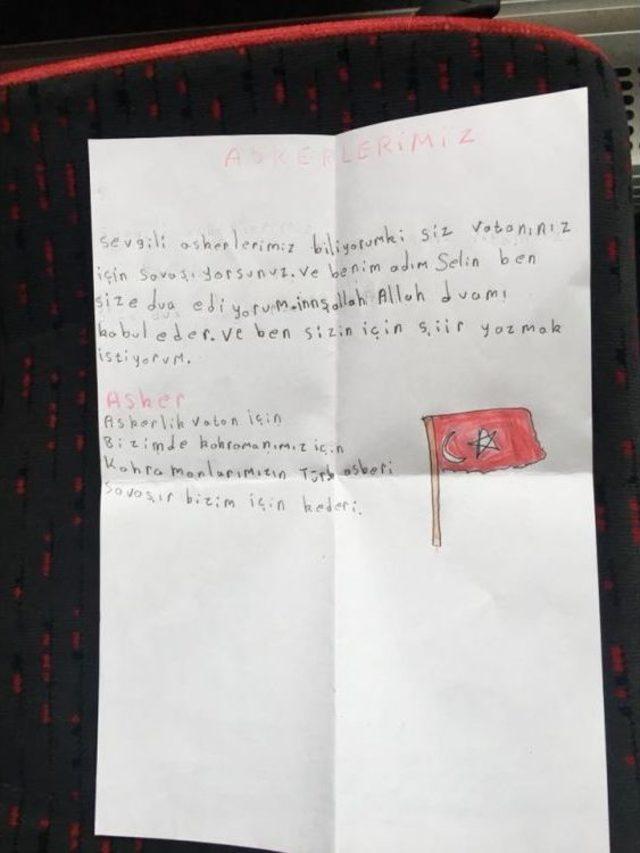 ASKERLERİMİZ
Sevgili askerlerimiz biliyorumki siz vatanınız
için savaşıyorsunuz. ve benim adım Selin ben
size dua ediyorum.innşallah Allah duamı
kabul eder. ve ben sizin için şiir yazmak
istiyorum.
Asker
Askerlik vatan için
Bizimde kahramanımız için
Kahramanlarımızın Türk askeri
Savaşır bizim için kederi.